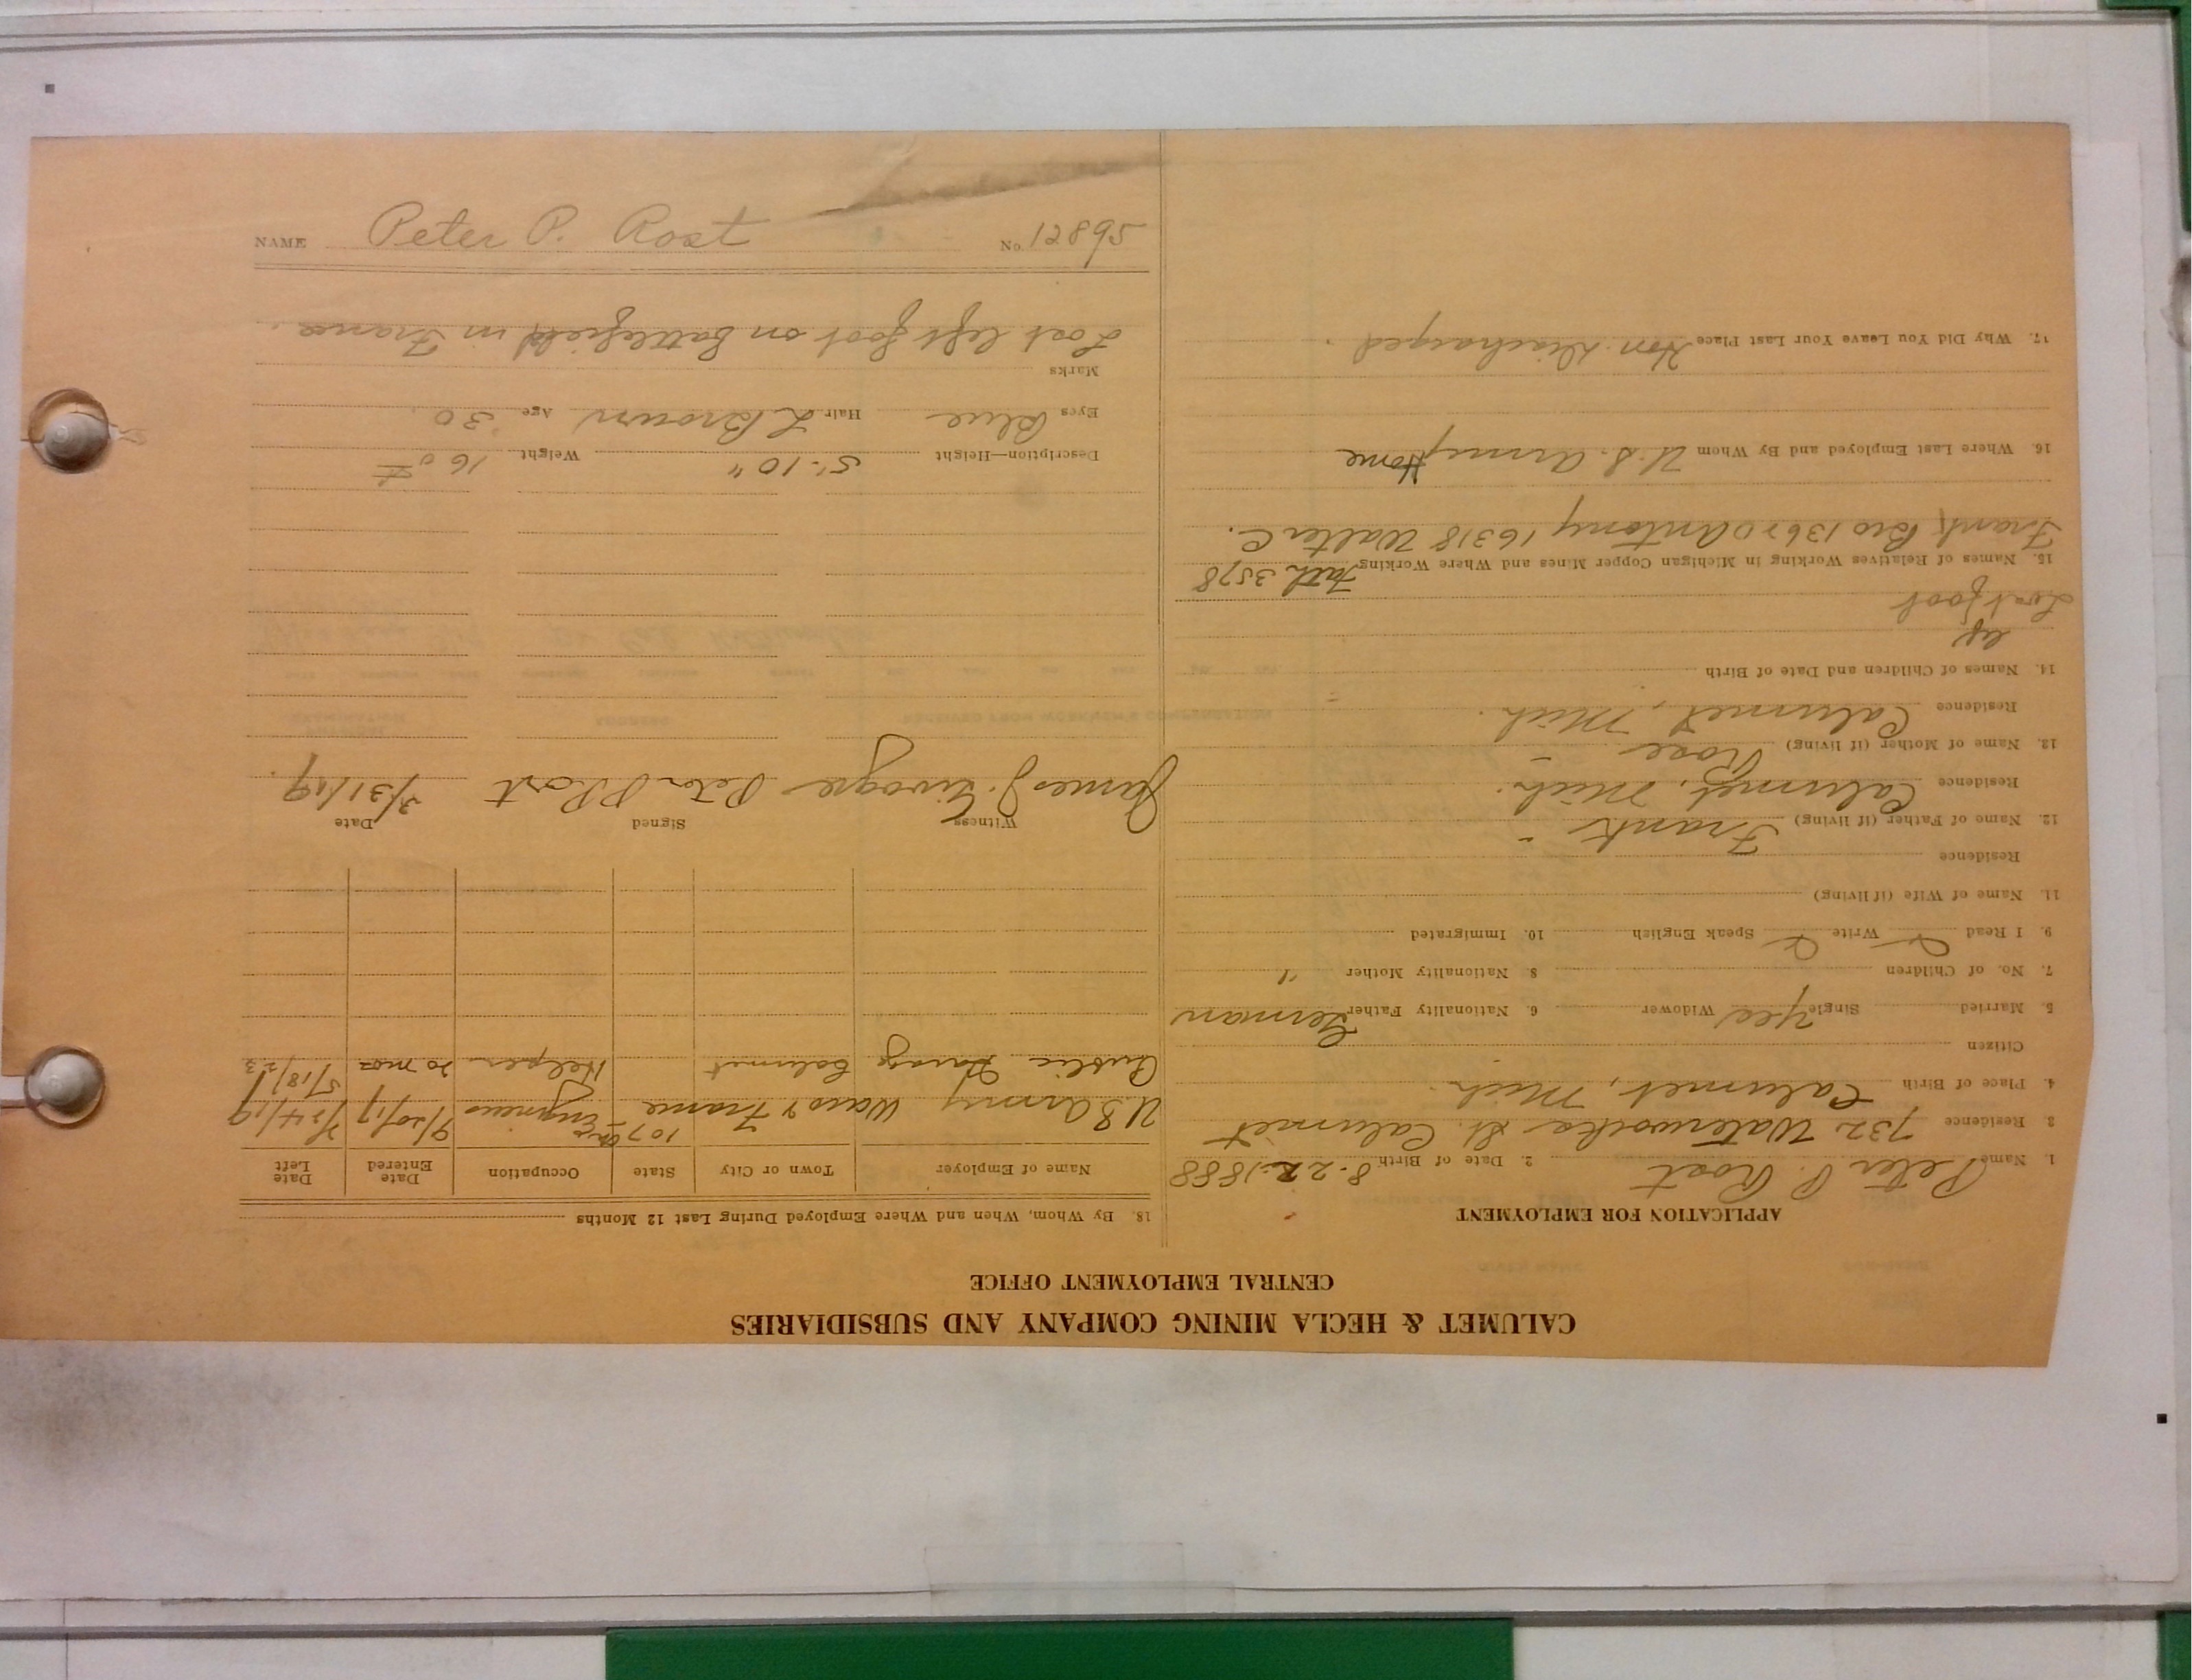 CALUMET & HECLA MINING COMPANY AND SUBSIDIARIES
CENTRAL EMPLOYMENT OFFICE
APPLICATION FOR EMPLOYMENT
1. Name Peter P. Rost 2. Date of Birth 8-22-1888
3 Residence 732 Waterworks St. Calumet
4. Place of Birth Calumet, Mich.
Citizen
5. Married Single Yes Widower 6. Nationality Father German
7. No. of Children 8. Nationality Mother "
9. I Read Write Speak English 10. Immigrated
11. Name of Wife (if living)
Residence
12. Name of Father (if living) Frank -
Residence Calumet, Mich.
13. Name of Mother (if living) Rose -
Residence Calumet, Mich.
14. Names of Children and Date of Birth
left
Lost foot
15. Names of Relatives Working in Michigan Copper Mines and Where Working Fath 3578
Frank Bro 13620 Antony 16318 Walter C.
16. Where Last Employed and By Whom U.S. Army Home
17. Why Did You Leave Your Last Place Hon. Discharged.
18. By Whom, When and Where Employed During Last 12 Months
Name of Employer Town or City State Occupation Date Entered Date Left
U S Army Waco & France 107 Eng Engineers 9/20/17 7/24/19
Public Garage Calumet Helper 20 mos 5/18/23
Witness Signed Date
James J. Peter P Rost 7/31/19.
Description—Height 5'-10" Weight 160 #
Eyes Blue Hair L Brown Age 30
Marks
Lost left foot on battlefield in France.
NAME Peter P. Rost No. 12895